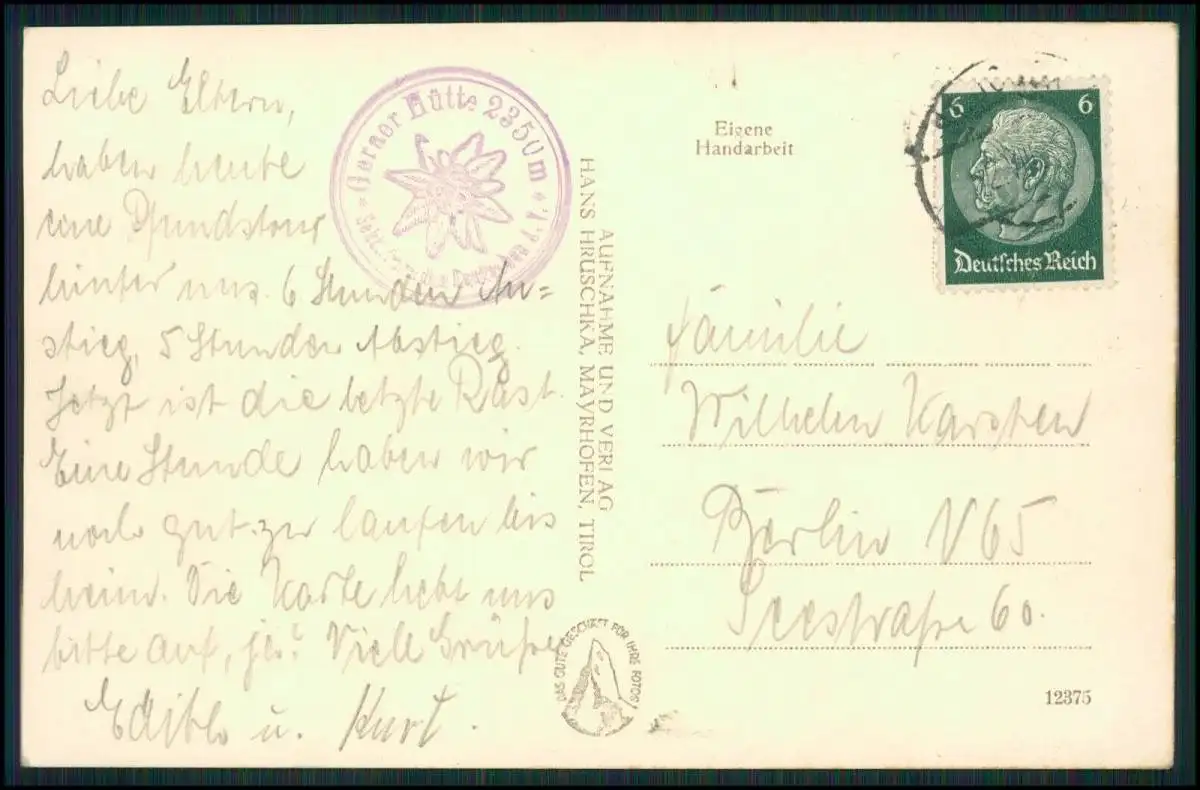 Liebe Eltern,
haben heute
eine Pfundstour
hinter uns. 6 Stunden An=
stieg, 5 Stunden Abstieg.
Jetzt ist die letzte Rast.
Eine Stunde haben wir
noch gut zu laufen bis
heim. Die Karte hebt uns
bitte auf, ja? Viele Grüße
Edith u. Kurt.
Geraer Hütte 2350m
AUFNAHME UND VERLAG
HANS HRUSCHKA, MAYRHOFEN, TIROL
DAS GUTE GESCHÄFT FÜR IHRE FOTOS!
Eigene
Handarbeit
6 6
Deutsches Reich
Familie
Wilhelm Karsten
Berlin N65
Seestraße 60.
12375